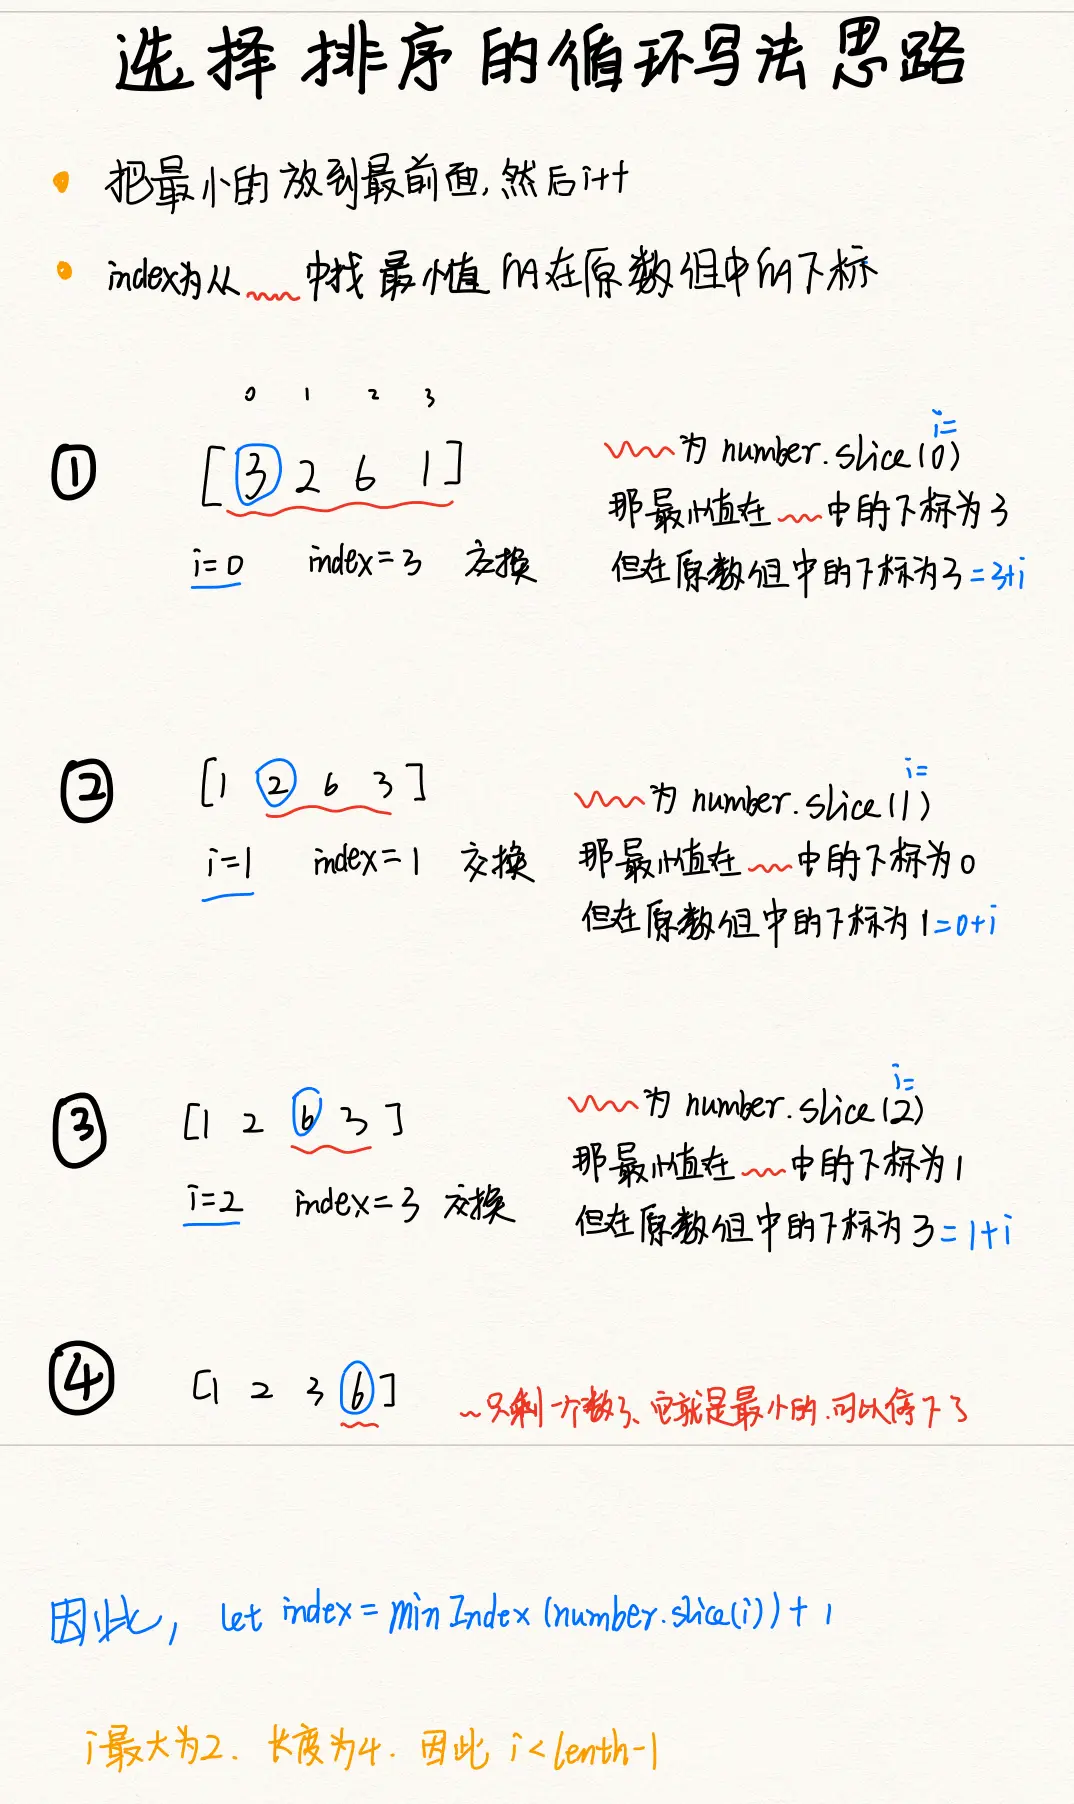 选择排序的循环写法思路
把最小的放到最前面,然后i++
index为从 中找最小值的在原数组中的下标
0 1 2 3
① [3 2 6 1]
i=0 index=3 交换
i=
为 number.slice(0)
那最小值在 中的下标为3
但在原数组中的下标为3=3+i
② [1 2 6 3]
i=1 index=1 交换
i=
为 number.slice(1)
那最小值在 中的下标为0
但在原数组中的下标为1=0+i
③ [1 2 6 3]
i=2 index=3 交换
i=
为 number.slice(2)
那最小值在 中的下标为1
但在原数组中的下标为3=1+i
④ [1 2 3 6]
~只剩一个数了、它就是最小的.可以停下了
因此, let index = minIndex(number.slice(i))+ i
i最大为2. 长度为4. 因此 i<lenth-1